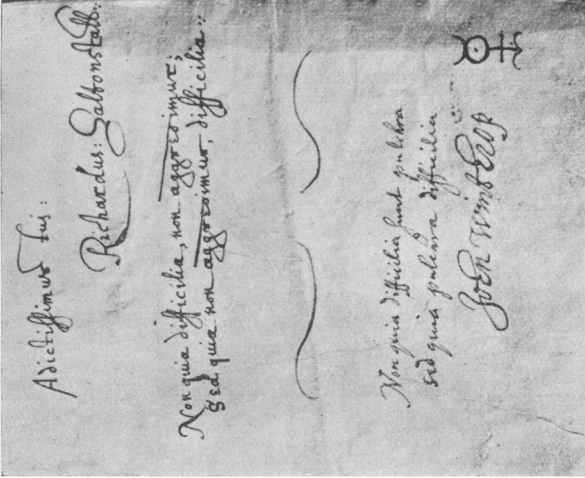 Adictissimus tuis:
Richardus: Saltonstall:
Non quia difficilia, non aggredimur;
Sed quia non aggredimur, difficilia:
Non quia difficilia sunt pulchra
sed quia pulchra difficilia
John Winthrop